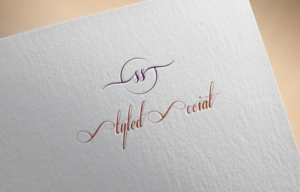 ss
Styled Social